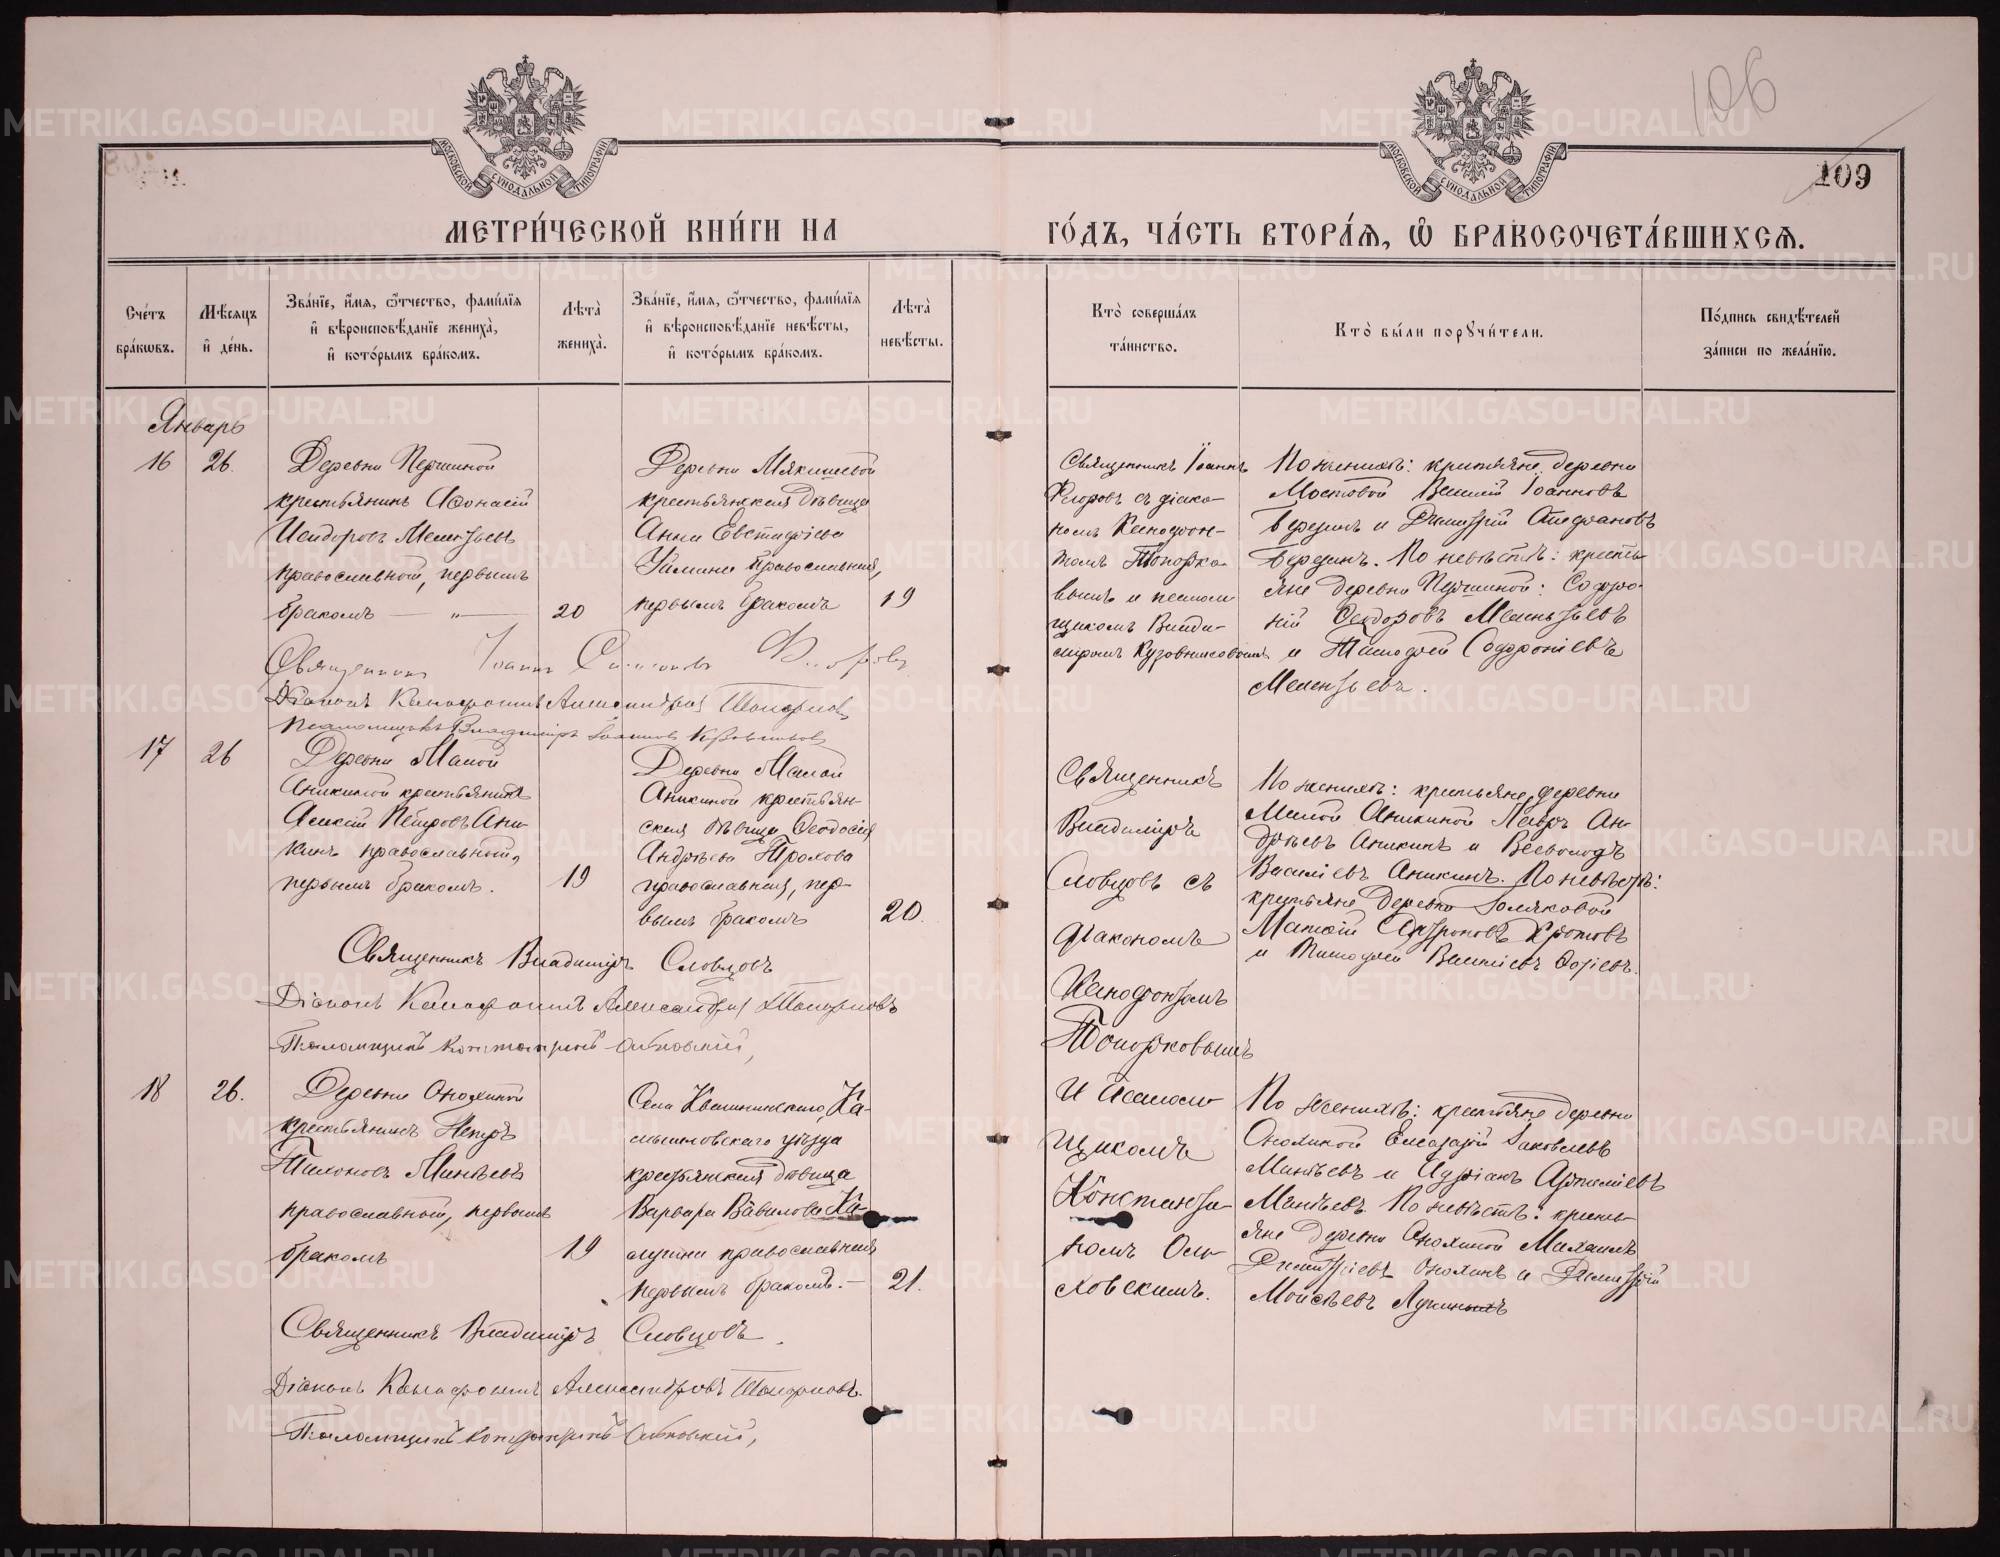 106
109
МОСКОВСКОЙ СѴНОДАЛЬНОЙ ТИПОГРАФІИ
МОСКОВСКОЙ СѴНОДАЛЬНОЙ ТИПОГРАФІИ
МЕТРИ́ЧЕСКОЙ КНИ́ГИ НА
ГО́ДЪ, ЧА́СТЬ ВТОРА́Я, Ѽ БРАКОСОЧЕТА́ВШИХСЯ.
Сче́тъ бра́кѡвъ.
Мѣ́сяцъ и҆ де́нь.
Зва́нїе, и҆́мѧ, ѻ҆́тчество, фами́лїѧ и҆ вѣроисповѣ́данїе жениха̀, и҆ кото́рымъ бра́комъ.
Лѣта̀ жениха̀.
Зва́нїе, и҆́мѧ, ѻ҆́тчество, фами́лїѧ и҆ вѣроисповѣ́данїе невѣ́сты, и҆ кото́рымъ бра́комъ.
Лѣта̀ невѣ́сты.
Кто̀ соверша́лъ та́инство.
Кто̀ бы́ли порꙋчи́тели.
По́дпись свидѣ́телей за́писи по жела́нїю.
Январь
16
26.
Деревни Першиной
крестьянинъ Аѳонасій
Исидоровъ Мелентьевъ
православной, первымъ
бракомъ — „ —
20
Деревни Мякишевой
крестьянская дѣвица
Анна Евстафіева
православная,
первымъ бракомъ
19
Священникъ Іоаннъ
Флоровъ съ діако-
номъ Ксенофон-
томъ Топорко-
вымъ и псаломщикомъ Влади-
міромъ Кузовниковымъ
По женихѣ: крестьяне деревни
Мостовой Василій Іоанновъ
Верединъ и Димитрій Стефановъ
Верединъ. По невѣстѣ: кресть-
яне деревни Першиной: Софро-
ній Ѳеодоровъ Мелентьевъ
и Тимоѳей Софроніевъ
Мелентьевъ.
Священникъ Іоаннъ Флоровъ
Діаконъ Ксенофонтъ Александровъ Топорковъ
Псаломщикъ Владиміръ Іоанновъ Кузовниковъ
17
26
Деревни Малой
Аникиной крестьянинъ
Алексій Петровъ Ани-
кинъ православной,
первымъ бракомъ.
19
Деревни Малой
Аникиной крестьян-
ская дѣвица Ѳеодосія
Андреева Трохова
православная, пер-
вымъ бракомъ
20.
Священникъ
Владиміръ
Словцовъ съ
діакономъ
Ксенофонтомъ
Топорковымъ
и псалом-
щикомъ
Константи-
номъ Оль-
ховскимъ.
По женихѣ: крестьяне деревни
Малой Аникиной Лавръ Ан-
дреевъ Аникинъ и Всеволодъ
Василіевъ Аникинъ. По невѣстѣ:
крестьяне деревни Голяковой
Матѳій Кротовъ
и Тимоѳей Василіевъ
Священникъ Владиміръ Словцовъ
Діаконъ Ксенофонтъ Александровъ Топорковъ
Псаломщикъ Константинъ Ольховскій,
18
26.
Деревни Онохиной
крестьянинъ Петръ
Тихоновъ Минѣевъ
православной, первымъ
бракомъ
19
Села Квашнинскаго, Ка-
мышловскаго уѣзда
крестьянская дѣвица
Варвара Вавилова Ка-
православная
первымъ бракомъ. —
21.
По женихѣ: крестьяне деревни
Онохиной Елеазарій Іаковлевъ
Минѣевъ и Адріанъ Артеміевъ
Минѣевъ. По невѣстѣ: кресть-
яне деревни Онохиной Михаилъ
Димитріевъ Онохинъ и Димитрій
Моисѣевъ
Священникъ Владиміръ Словцовъ.
Діаконъ Ксенофонтъ Александровъ Топорковъ.
Псаломщикъ Константинъ Ольховскій,
METRIKI.GASO-URAL.RU